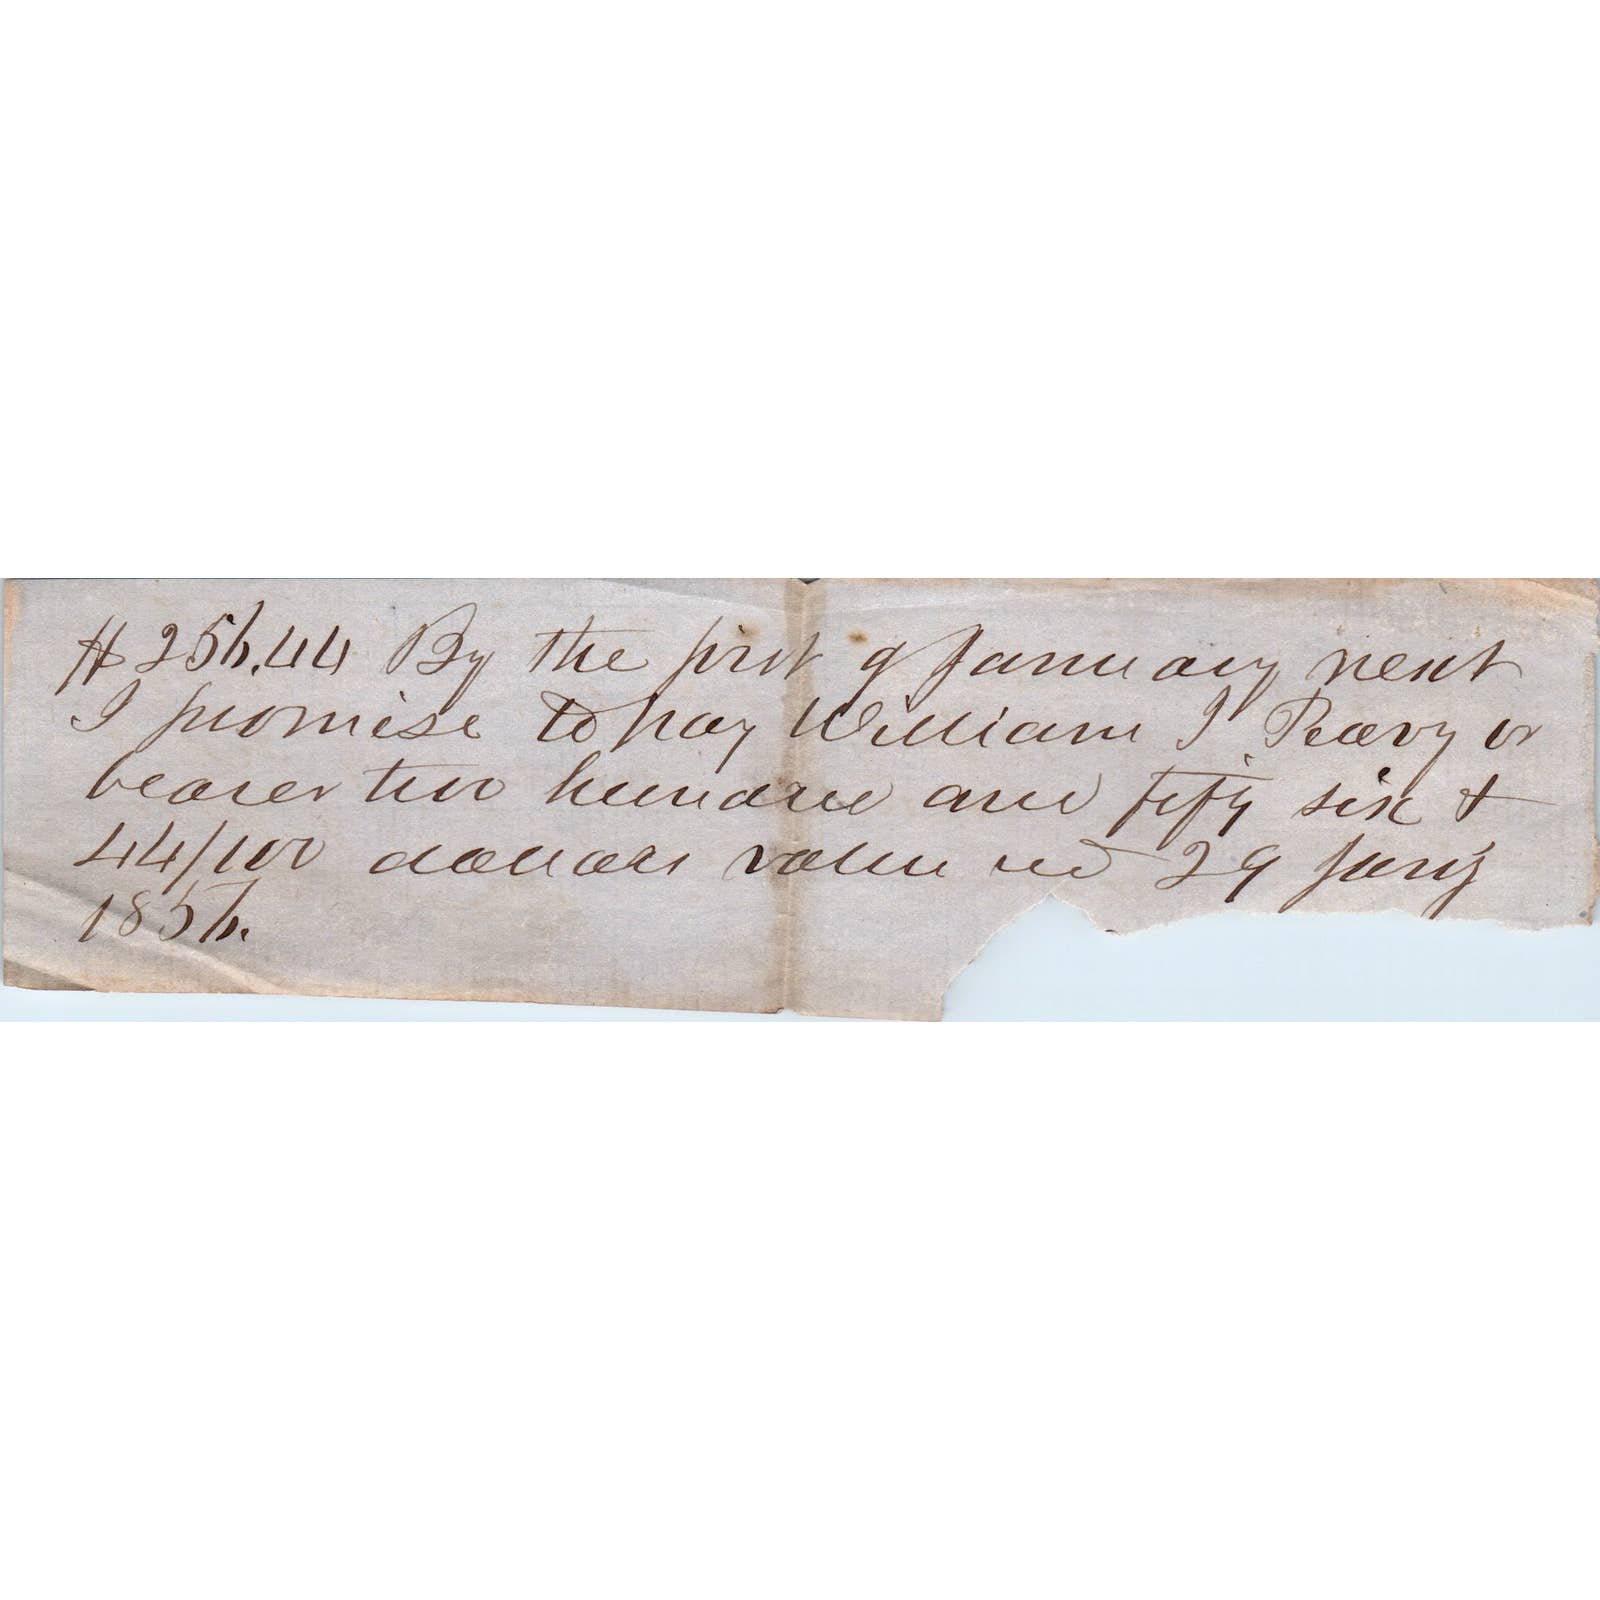 $256.44 By the first of January next
I promise to pay William J Peavy or
bearer two hundred and fifty six &
44/100 dollars value recd 29 Jany
1856.